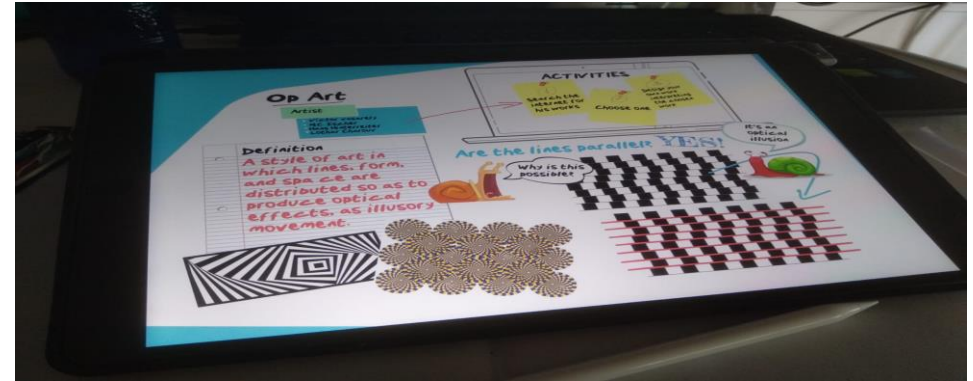 Op Art
Artist
ACTIVITIES
Search the
internet for
his works
Choose one
Design your
own work
Definition
A style of art in
which lines, form,
and spa ce are
distributed so as to
produce optical
effects, as illusory
movement.
Are the lines parallel? YES!
Why is this
possible?
It's an
optical
illusion